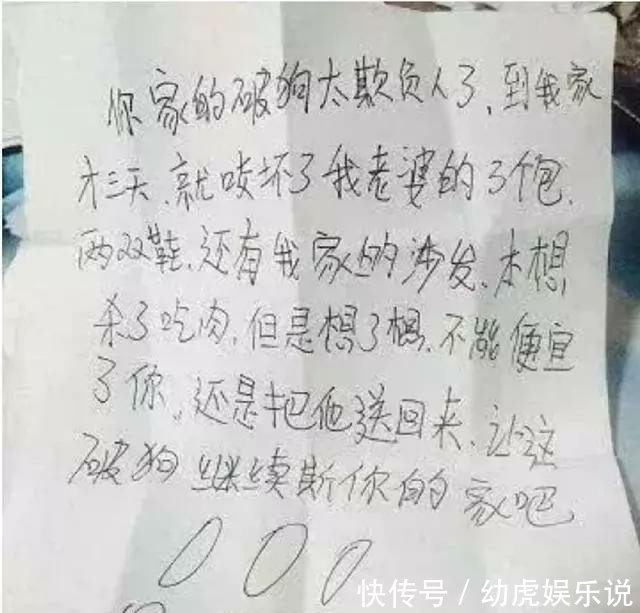 你家的破狗太欺负人了、到我家
才三天、就咬坏了我老婆的3个包、
两双鞋、还有我家的沙发、本想
杀了吃肉、但是想了想、不能便宜
了你、还是把他送回来、让这
破狗继续斯你的家吧
快传号 / 幼虎娱乐说